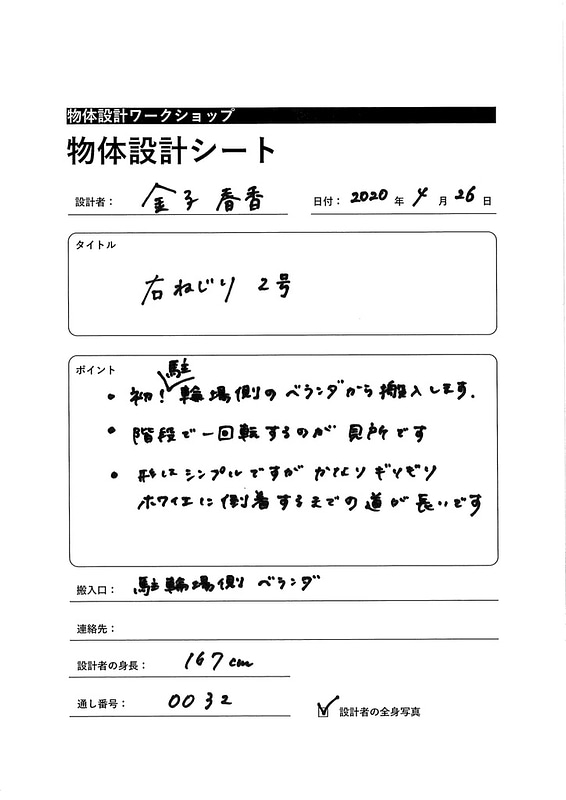 物体設計ワークショップ
物体設計シート
設計者： 金子 春香 日付： 2020 年 4 月 26 日
タイトル
右ねじり 2号
ポイント
・初！駐輪場側のベランダから搬入します.
・階段で一回転するのが見所です
・形はシンプルですが かなりギリギリ
ホワイエに倒着するまでの道が長いです
搬入口： 駐輪場側 ベランダ
連絡先：
設計者の身長： 167cm
通し番号： 0032
☑ 設計者の全身写真